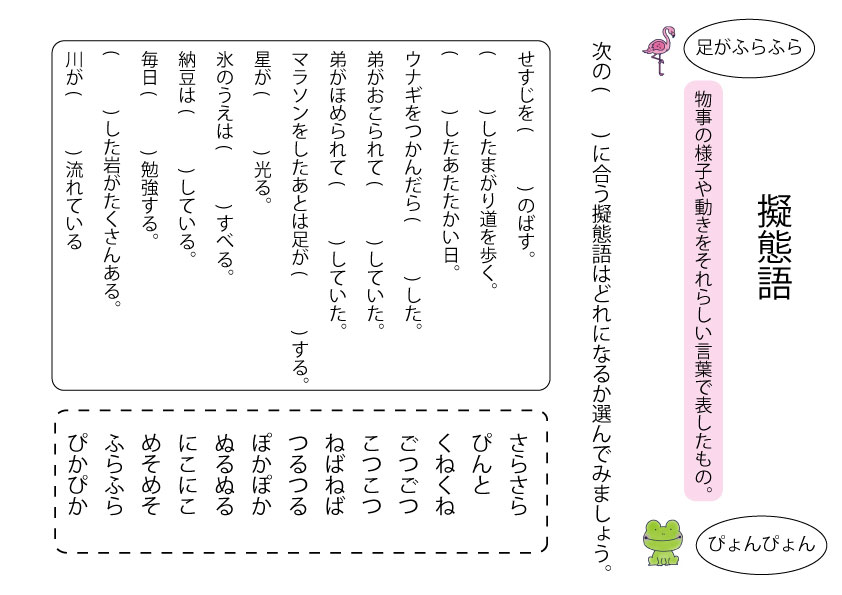 擬態語
足がふらふら
物事の様子や動きをそれらしい言葉で表したもの。
ぴょんぴょん
次の（　　）に合う擬態語はどれになるか選んでみましょう。
せすじを（　　）のばす。
（　　）したまがり道を歩く。
（　　）したあたたかい日。
ウナギをつかんだら（　　）した。
弟がおこられて（　　）していた。
弟がほめられて（　　）していた。
マラソンをしたあとは足が（　　）する。
星が（　　）光る。
氷のうえは（　　）すべる。
納豆は（　　）している。
毎日（　　）勉強する。
（　　）した岩がたくさんある。
川が（　　）流れている
さらさら
ぴんと
くねくね
ごつごつ
こつこつ
ねばねば
つるつる
ぽかぽか
ぬるぬる
にこにこ
めそめそ
ふらふら
ぴかぴか